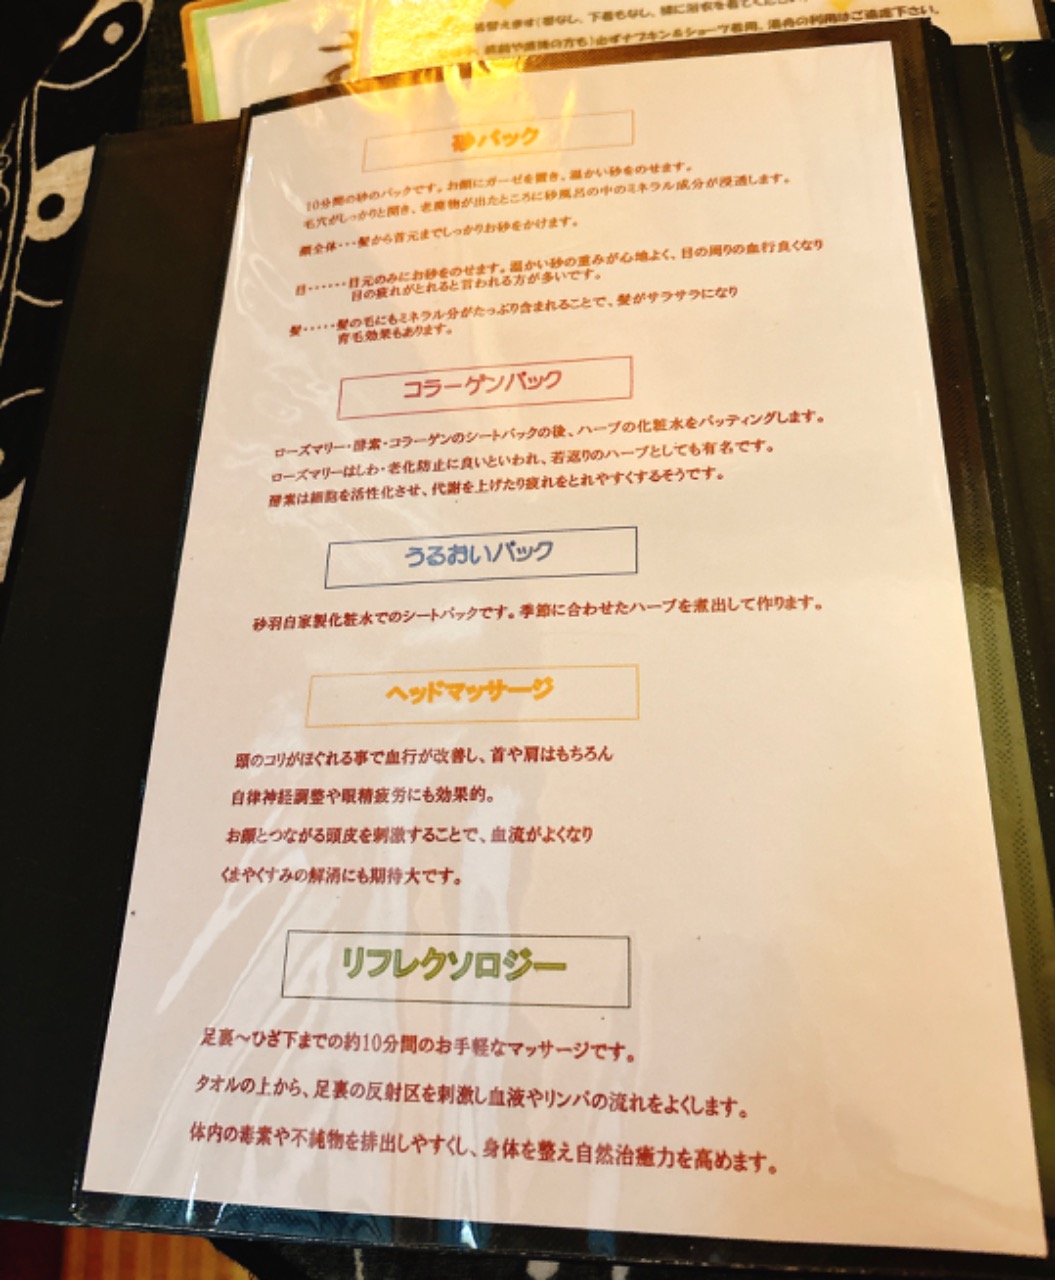 替えます(帯なし、下着もなし、
方も)必ずナプキン&ショーツ着用、湯舟の利用はご遠慮下さい。
砂パック
10分間の砂のパックです。お顔にガーゼを置き、温かい砂をのせます。
毛穴がしっかりと開き、老廃物が出たところに砂風呂の中のミネラル成分が浸透します。
顔全体・・・髪から首元までしっかりお砂をかけます。
目・・・・・・目元のみにお砂をのせます。温かい砂の重みが心地よく、目の周りの血行良くなり
目の疲れがとれると言われる方が多いです。
髪・・・・・髪の毛にもミネラル分がたっぷり含まれることで、髪がサラサラになり
育毛効果もあります。
コラーゲンパック
ローズマリー・酵素・コラーゲンのシートパックの後、ハーブの化粧水をパッティングします。
ローズマリーはしわ・老化防止に良いといわれ、若返りのハーブとしても有名です。
酵素は細胞を活性化させ、代謝を上げたり疲れをとれやすくするそうです。
うるおいパック
砂羽自家製化粧水でのシートパックです。季節に合わせたハーブを煮出して作ります。
ヘッドマッサージ
頭のコリがほぐれる事で血行が改善し、首や肩はもちろん
自律神経調整や眼精疲労にも効果的。
お顔とつながる頭皮を刺激することで、血流がよくなり
くまやくすみの解消にも期待大です。
リフレクソロジー
足裏～ひざ下までの約10分間のお手軽なマッサージです。
タオルの上から、足裏の反射区を刺激し血液やリンパの流れをよくします。
体内の毒素や不純物を排出しやすくし、身体を整え自然治癒力を高めます。